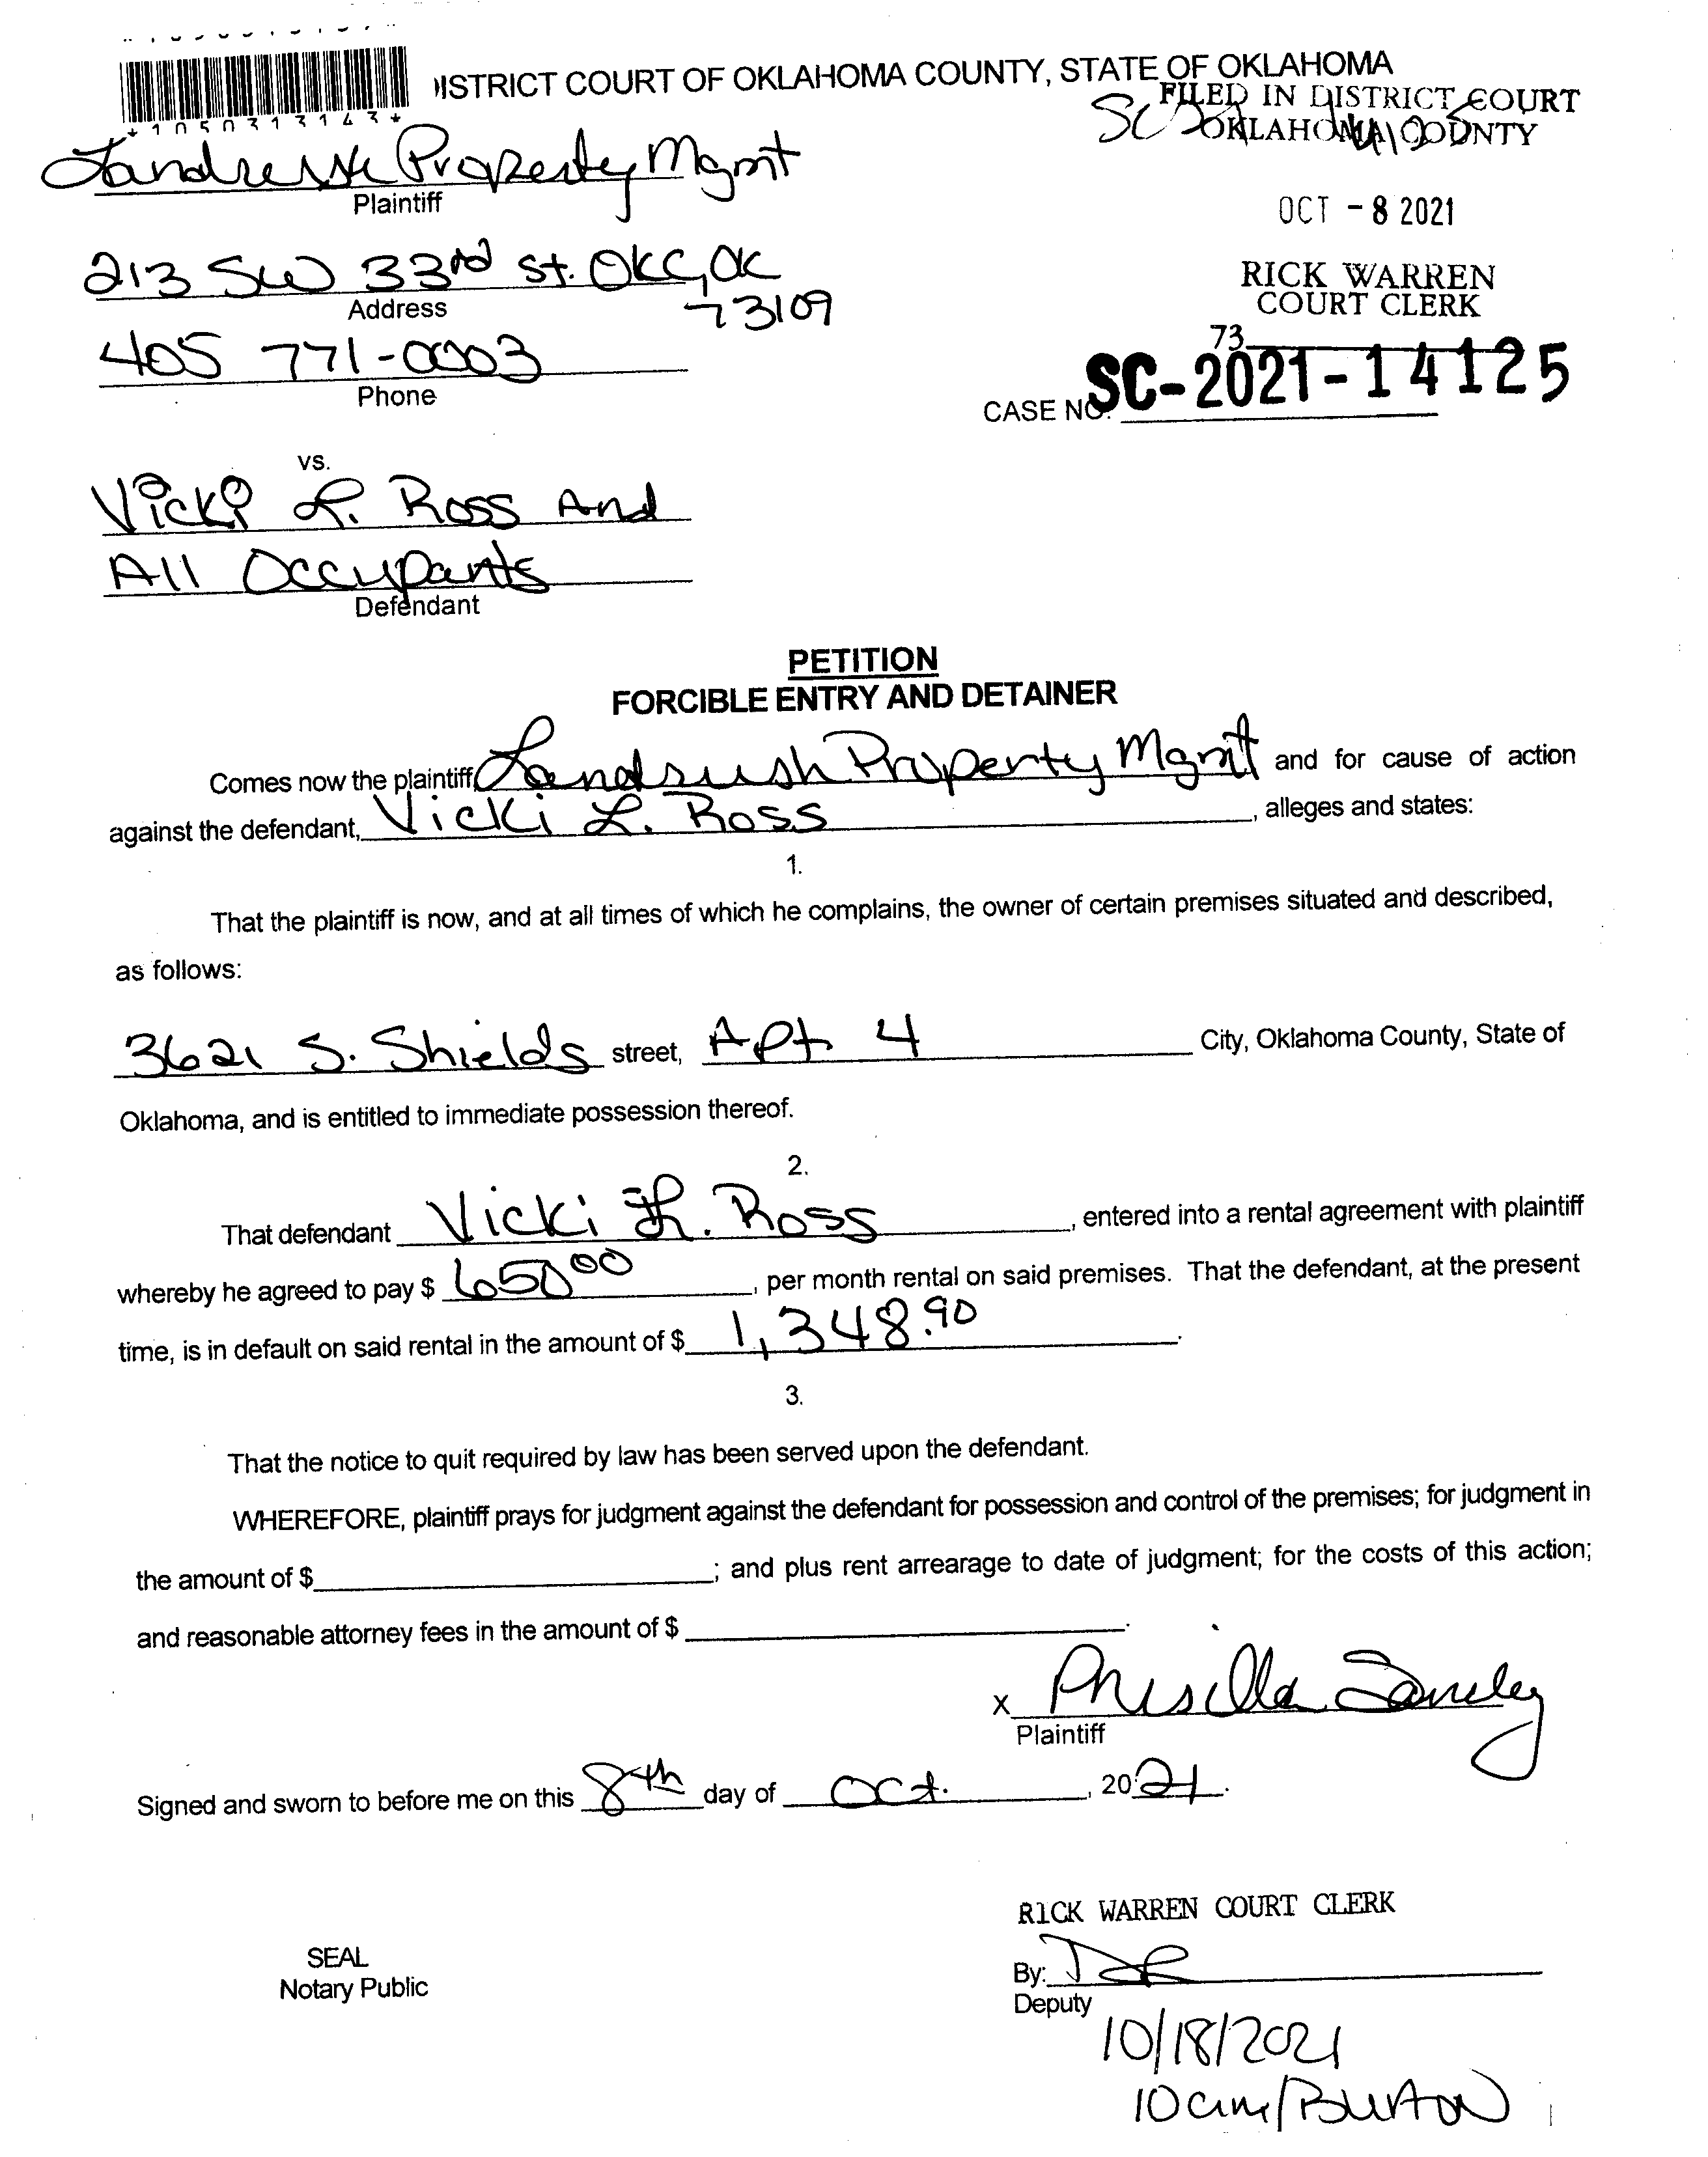 DISTRICT COURT OF OKLAHOMA COUNTY, STATE OF OKLAHOMA
FILED IN DISTRICT COURT
OKLAHOMA COUNTY
*1050313143*
Landrush Property Mgmt
Plaintiff
OCT - 8 2021
213 SW 33rd St. OKC, OK
73109
Address
RICK WARREN
COURT CLERK
405 771-0003
Phone
73
CASE NO. SC-2021-14125
vs.
Vicki L. Ross And
All Occupants
Defendant
PETITION
FORCIBLE ENTRY AND DETAINER
Comes now the plaintiff, Landrush Property Mgmt and for cause of action
against the defendant, Vicki L. Ross, alleges and states:
1.
That the plaintiff is now, and at all times of which he complains, the owner of certain premises situated and described,
as follows:
3621 S. Shields street, Apt 4 City, Oklahoma County, State of
Oklahoma, and is entitled to immediate possession thereof.
2.
That defendant Vicki L. Ross, entered into a rental agreement with plaintiff
whereby he agreed to pay $ 650 00, per month rental on said premises. That the defendant, at the present
time, is in default on said rental in the amount of $ 1,348.90.
3.
That the notice to quit required by law has been served upon the defendant.
WHEREFORE, plaintiff prays for judgment against the defendant for possession and control of the premises; for judgment in
the amount of $ ; and plus rent arrearage to date of judgment; for the costs of this action;
and reasonable attorney fees in the amount of $ .
X Priscilla
Plaintiff
Signed and sworn to before me on this 8th day of Oct., 2021.
RICK WARREN COURT CLERK
SEAL
Notary Public
By:
Deputy
10/18/2021
10am/Burton